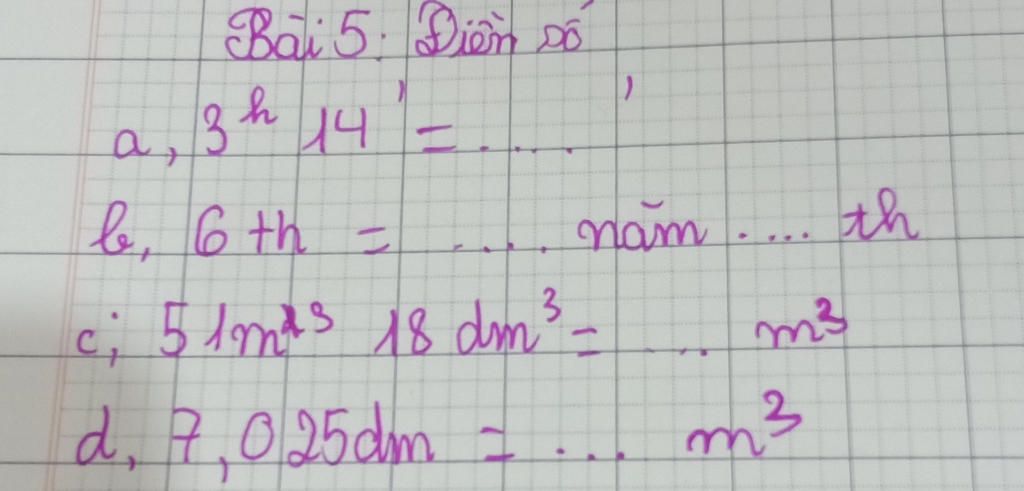 Bài 5: Điền số
a, 3h 14' = ..... '
b, 6 th = .... năm .... th
c; 51m³ 18 dm³ = ... m³
d, 7,025dm = ... m³